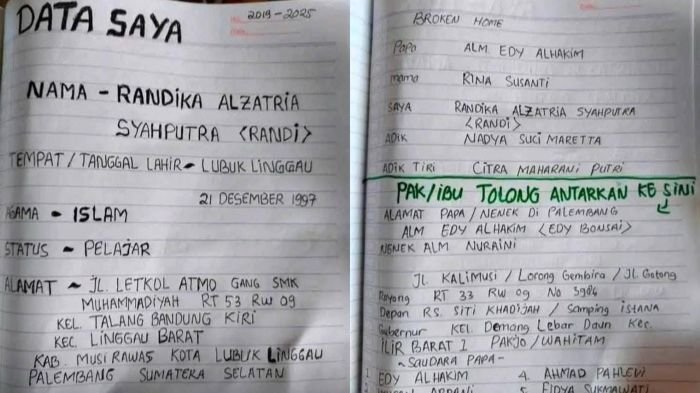 2019-2025
DATA SAYA
NAMA - RANDIKA ALZATRIA
SYAHPUTRA <RANDI>
TEMPAT / TANGGAL LAHIR - LUBUK LINGGAU
21 DESEMBER 1997
AGAMA - ISLAM
STATUS - PELAJAR
ALAMAT - JL. LETKOL ATMO GANG SMK
MUHAMMADIYAH RT 53 RW 09
KEL. TALANG BANDUNG KIRI
KEC. LINGGAU BARAT
KAB. MUSI RAWAS KOTA LUBUK LINGGAU
PALEMBANG SUMATERA SELATAN
BROKEN HOME
Papa ALM EDY ALHAKIM
mama RINA SUSANTI
SAYA RANDIKA ALZATRIA SYAHPUTRA
<RANDI>
ADIK NADYA SUCI MARETTA
ADIK TIRI CITRA MAHARANI PUTRI
PAK/IBU TOLONG ANTARKAN KE SINI
ALAMAT PAPA / NENEK DI PALEMBANG
ALM EDY ALHAKIM <EDY BONSAI>
NENEK ALM NURAINI
JL. KALIMUSI / Lorong Gembira / JL. Gotong
Royong RT 33 RW 09 No 3984
Depan RS. SITI KHADIJAH / Samping ISTANA
Gubernur KEL. Demang Lebar Daun Kec.
ILIR BARAT 1 PAKJO / WAHITAM
~SAUDARA PAPA~
1 EDY ALHAKIM 4. AHMAD PAHLEVI
5. FIDYA SUKMAWATI